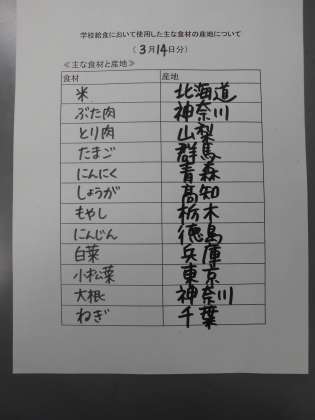 学校給食において使用した主な食材の産地について
（3月14日分）
≪主な食材と産地≫
食材 産地
米 北海道
ぶた肉 神奈川
とり肉 山梨
たまご 群馬
にんにく 青森
しょうが 高知
もやし 栃木
にんじん 徳島
白菜 兵庫
小松菜 東京
大根 神奈川
ねぎ 千葉